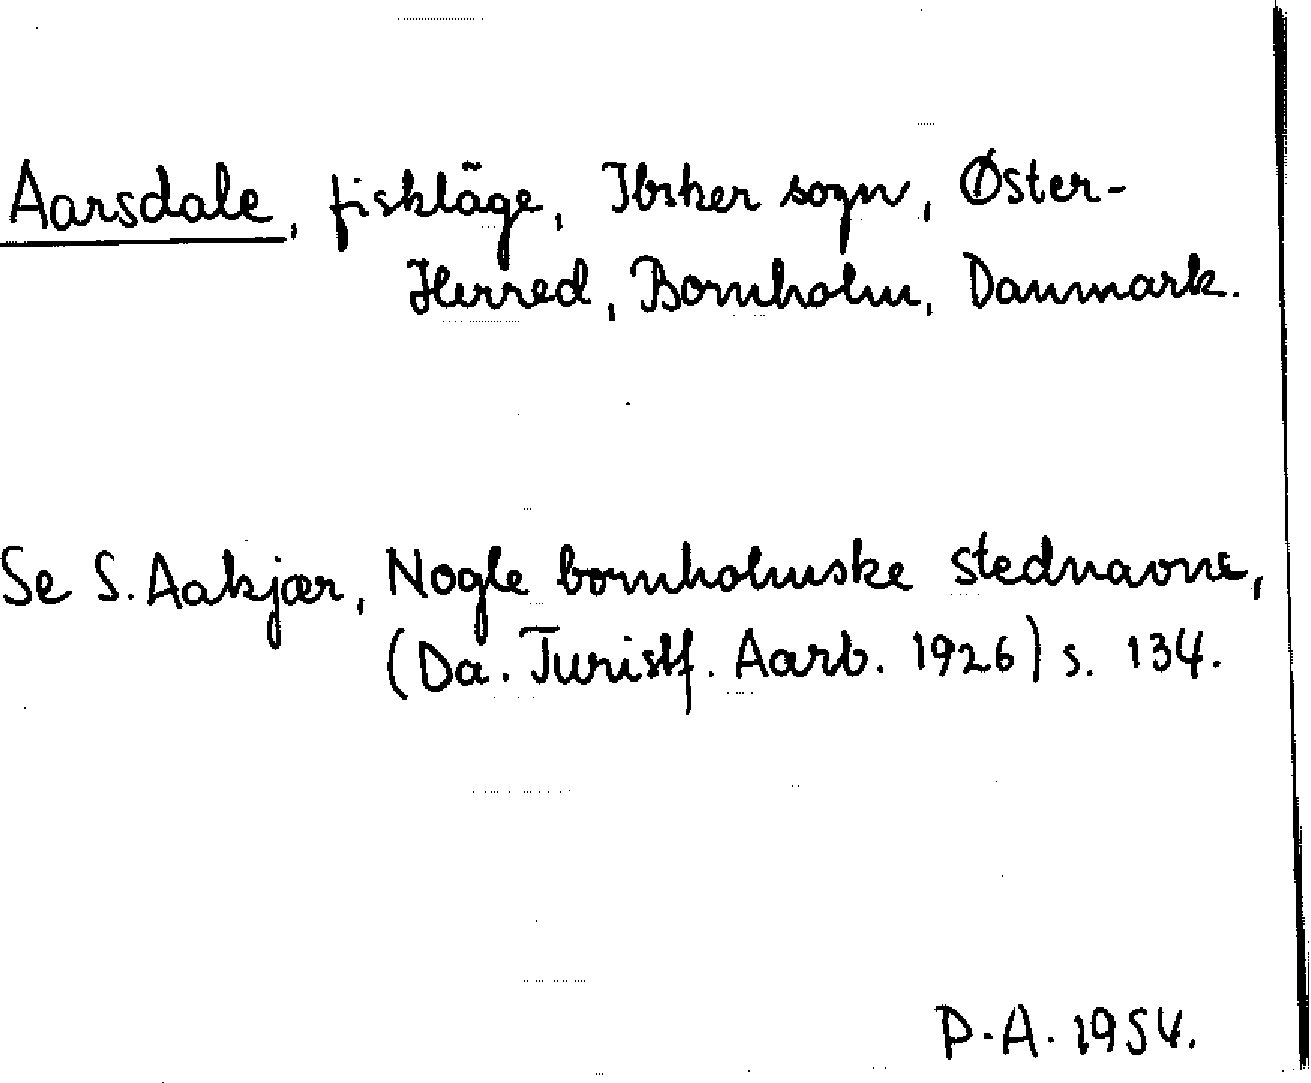 Aarsdale, fiskläge, Ibsker sogn, Øster-
Herred, Bornholm, Danmark.
Se S. Aakjær, Nogle bornholmske stednavne,
(Da. Turistf. Aarb. 1926) s. 134.
P.A. 1954.